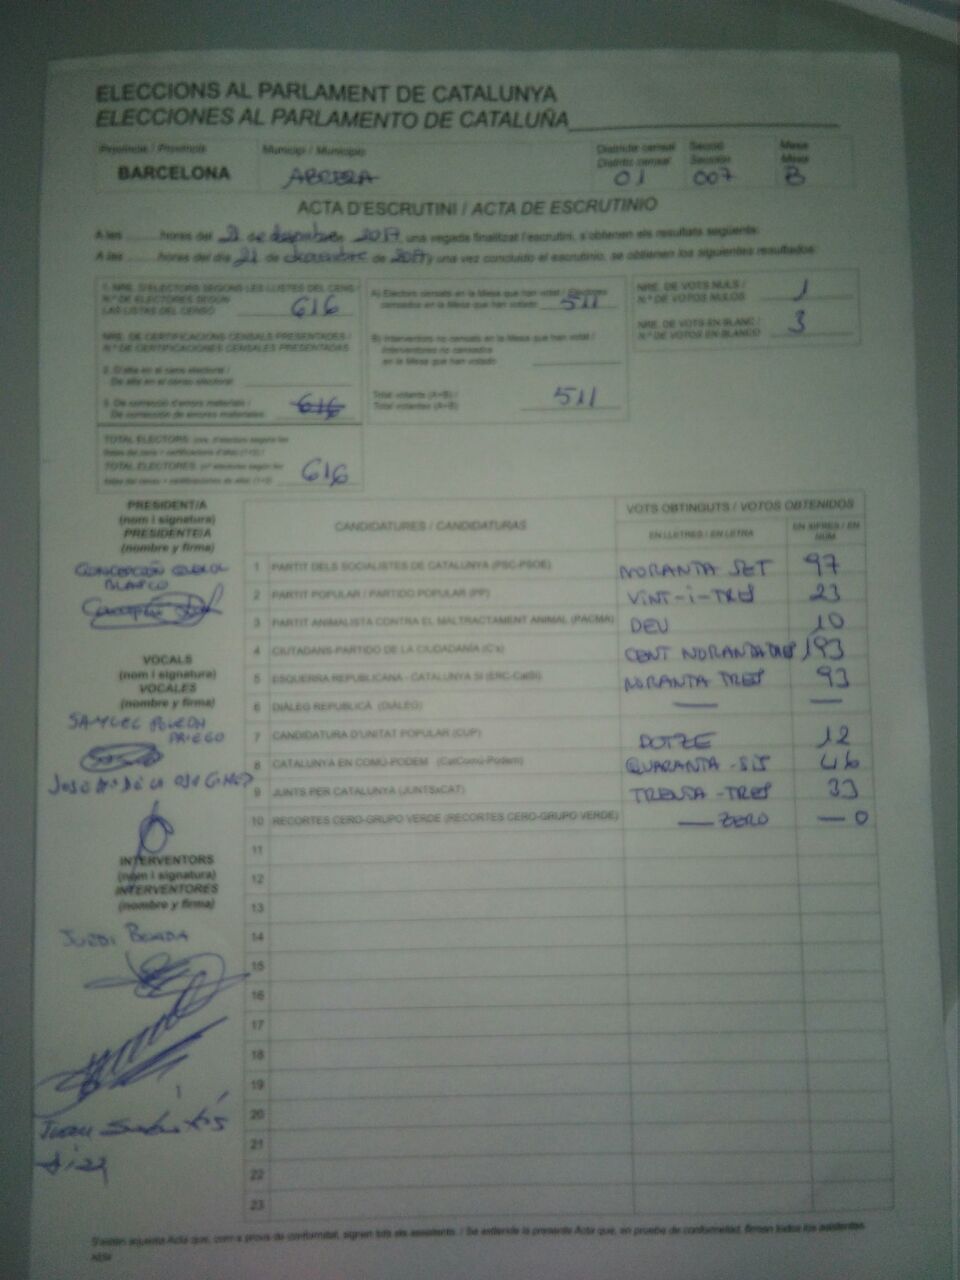 ELECCIONS AL PARLAMENT DE CATALUNYA
ELECCIONES AL PARLAMENTO DE CATALUÑA
Província / Provincia Municipi / Municipio Districte censal Secció Mesa
Distrito censal Sección Mesa
BARCELONA ABRERA 01 007 B
ACTA D'ESCRUTINI / ACTA DE ESCRUTINIO
A les ........ hores del 21 de desembre de 2017, una vegada finalitzat l'escrutini, s'obtenen els resultats següents:
A las ........ horas del día 21 de de 2017 y una vez concluido el escrutinio, se obtienen los siguientes resultados:
1. NRE. D'ELECTORS SEGONS LES LLISTES DEL CENS /
N.º DE ELECTORES SEGÚN
LAS LISTAS DEL CENSO 616
NRE. DE CERTIFICACIONS CENSALS PRESENTADES /
N.º DE CERTIFICACIONES CENSALES PRESENTADAS
2. D'alta en el cens electoral /
De alta en el censo electoral
3. De correcció d'errors materials /
De corrección de errores materiales 616
TOTAL ELECTORS: (nre. d'electors segons les
llistes del cens + certificacions d'altes (1+2)) /
TOTAL ELECTORES: (nº electores según las
listas del censo + certificaciones de altas (1+2)) 616
A) Electors censats en la Mesa que han votat / Electores
censados en la Mesa que han votado 511
B) Interventors no censats en la Mesa que han votat /
Interventores no censados
en la Mesa que han votado
Total votants (A+B) /
Total votantes (A+B) 511
NRE. DE VOTS NULS /
N.º DE VOTOS NULOS 1
NRE. DE VOTS EN BLANC /
N.º DE VOTOS EN BLANCO 3
PRESIDENT/A
(nom i signatura)
PRESIDENTE/A
(nombre y firma)
CONCEPCIÓN
BLASCO
VOCALS
(nom i signatura)
VOCALES
(nombre y firma)
SAMUEL
PRIEGO
JOSE
INTERVENTORS
(nom i signatura)
INTERVENTORES
(nombre y firma)
JORDI
Juan
CANDIDATURES / CANDIDATURAS VOTS OBTINGUTS / VOTOS OBTENIDOS
EN LLETRES / EN LETRA EN XIFRES / EN NÚM.
1 PARTIT DELS SOCIALISTES DE CATALUNYA (PSC-PSOE) NORANTA SET 97
2 PARTIT POPULAR / PARTIDO POPULAR (PP) VINT-I-TRES 23
3 PARTIT ANIMALISTA CONTRA EL MALTRACTAMENT ANIMAL (PACMA) DEU 10
4 CIUTADANS-PARTIDO DE LA CIUDADANÍA (C's) CENT NORANTA TRES 193
5 ESQUERRA REPUBLICANA - CATALUNYA SÍ (ERC-CatSí) NORANTA TRES 93
6 DIÀLEG REPUBLICÀ (DIÀLEG) — —
7 CANDIDATURA D'UNITAT POPULAR (CUP) DOTZE 12
8 CATALUNYA EN COMÚ-PODEM (CatComú-Podem) QUARANTA-SIS 46
9 JUNTS PER CATALUNYA (JUNTSxCAT) TRENTA-TRES 33
10 RECORTES CERO-GRUPO VERDE (RECORTES CERO-GRUPO VERDE) — ZERO — 0
11
12
13
14
15
16
17
18
19
20
21
22
23
S'estén aquesta Acta que, com a prova de conformitat, signen tots els assistents. / Se extiende la presente Acta que, en prueba de conformidad, firman todos los asistentes.